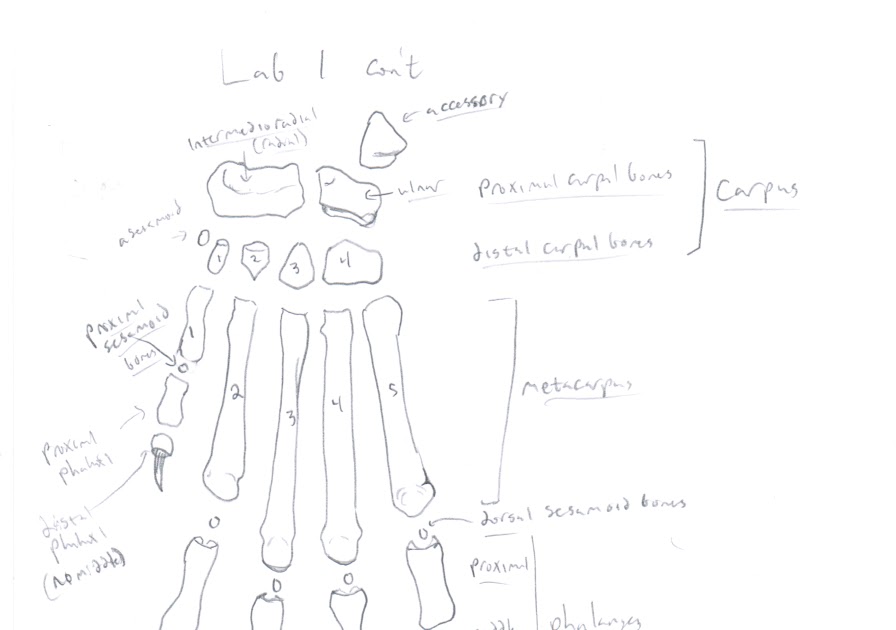 Lab 1 con't
accessory
Intermedioradial
(radial)
ulnar
proximal carpal bones
Carpus
a sesamoid
1 2 3 4
distal carpal bones
proximal
sesamoid
bones
1 2 3 4 5
metacarpus
proximal
phalanx 1
distal
phalanx 1
(no middle)
dorsal sesamoid bones
proximal
phalanges